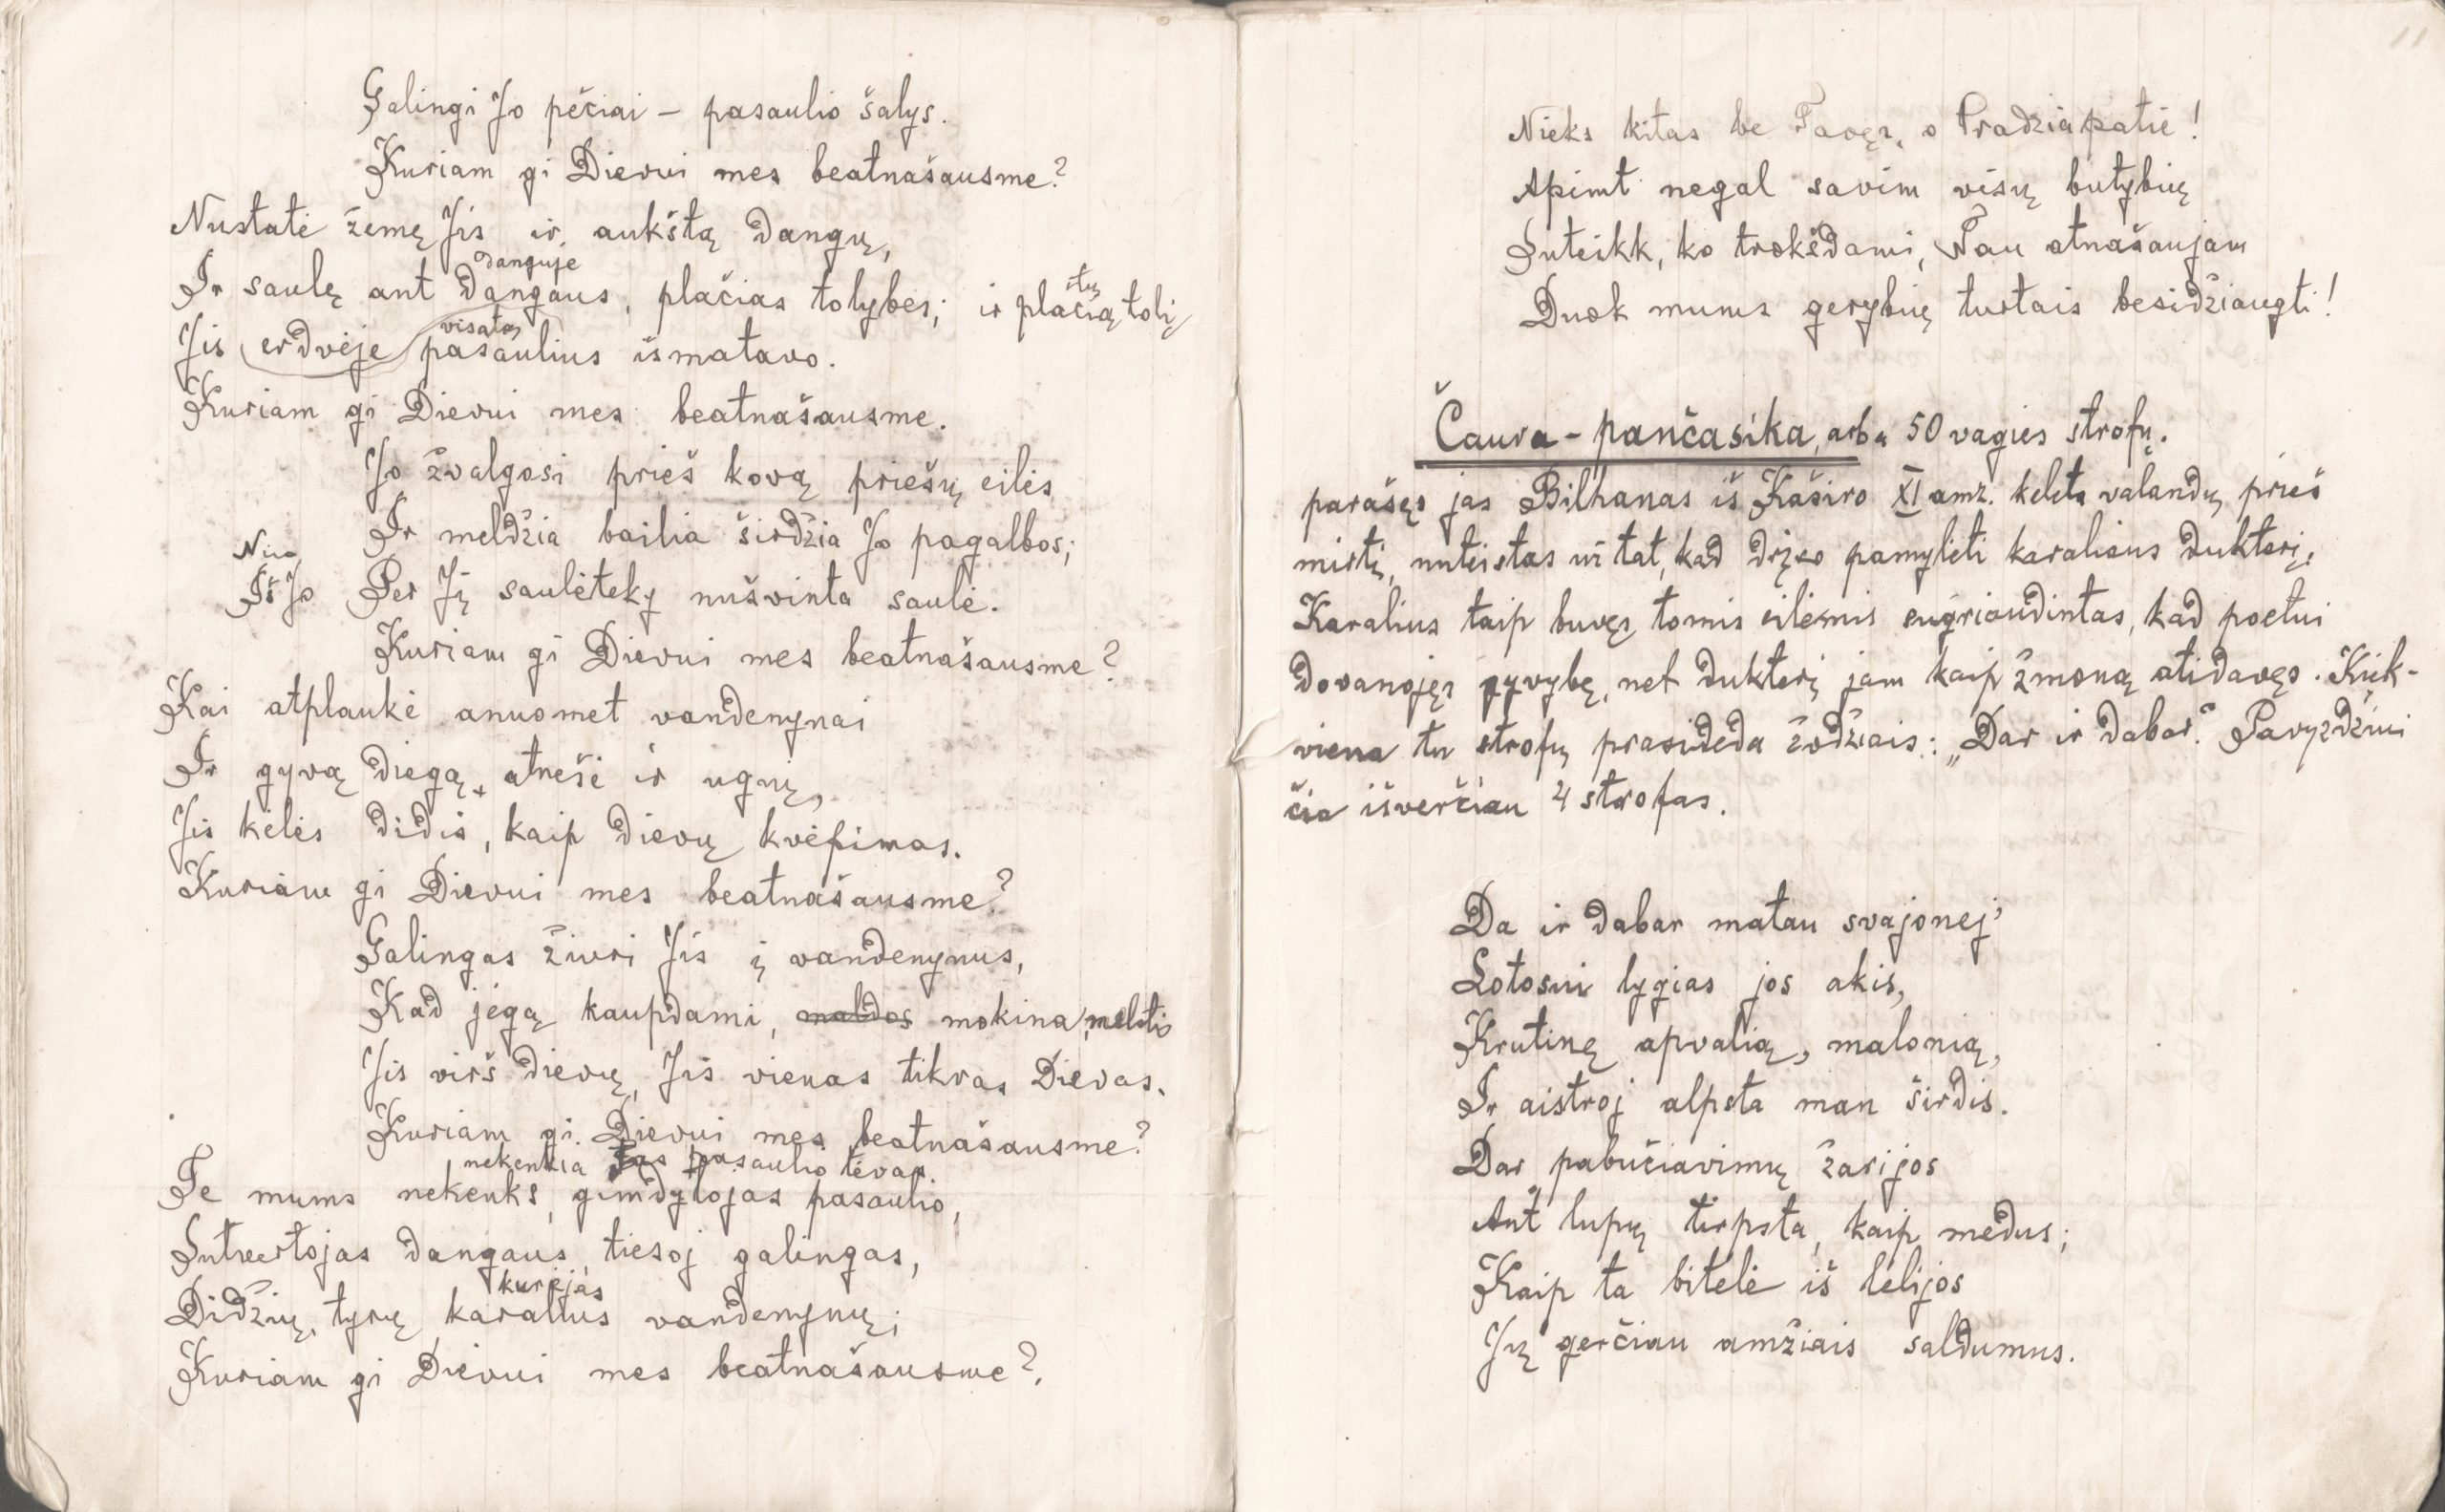 Galingi Jo pėčiai – pasaulio šalys.
Kuriam gi Dievui mes beatnašausme?
Nustatė žemę Jis ir aukštą dangų,
danguje
Ir saulę ant dangaus, plačias tolybes; ir plačią tolį
tų
visatą
Jis erdvėje pasaulius išmatavo.
Kuriam gi Dievui mes beatnašausme.
Jo žvalgosi prieš kovą priešų eilės
Ir meldžia bailia širdžia Jo pagalbos;
Nuo
Iš Jo Per Jį saulėteky nušvinta saulė.
Kuriam gi Dievui mes beatnašausme?
Kai atplaukė anuomet vandenynai
Ir gyvą diegą, atnešė ir ugnį,
Jis kėlės didis, kaip dievų kvėpimas.
Kuriam gi Dievui mes beatnašausme?
Galingas žiuri Jis į vandenynus,
Kad jėgą kaupdami, maldos mokina melstis
Jis virš dievų, Jis vienas tikras Dievas.
Kuriam gi Dievui mes beatnašausme?
nekenkia tas pasaulio tėvas.
Te mums nekenks, gimdytojas pasaulio,
Sutvertojas dangaus, tiesoj galingas,
kurėjas
Didžių, tyrų karalius vandenynų;
Kuriam gi Dievui mes beatnašausme?
11
Nieks kitas be Tavęs, o Pradžiapatie!
Apimt negal savim visų butybių
Suteikk, ko trokšdami, Tau atnašaujam
Duok mums gerybių turtais besidžiaugti!
Čaura-pančasika, arba 50 vagies strofų.
parašęs jas Bilhanas iš Kaširo XI amž. keletą valandų prieš
mirtį, nuteistas už tat, kad drįso pamylėti karaliaus dukterį.
Karalius taip buvęs tomis eilėmis sugriaudintas, kad poetui
dovanojęs gyvybę, net dukterį jam kaip žmoną atidavęs. Kiek-
viena tu strofų prasideda žodžiais: „Dar ir dabar". Pavyzdžiui
čia išverčiau 4 strofas.
Da ir dabar matau svajonej'
Lotosui lygias jos akis,
Krutinę apvalią, malonią,
Ir aistroj alpsta man širdis.
Dar pabučiavimų žarijos
Ant lupų tirpsta, kaip medus;
Kaip ta bitelė iš lelijos
Jų gerčiau amžiais saldumus.